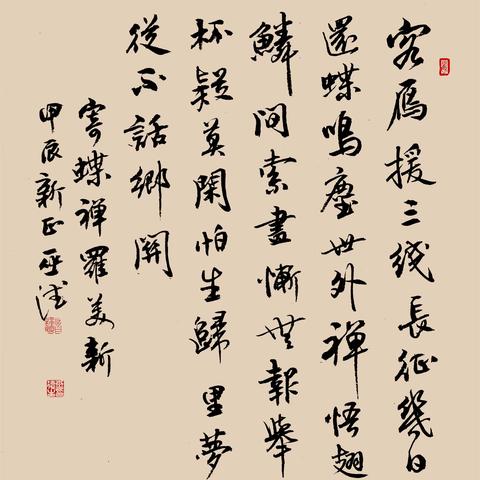 客雁援三线長征幾日
還蝶鳴塵世外禅悟翅
鱗间索畫慚無報舉
杯疑莫閑怕生歸里夢
從不話鄉關
寄蝶禅羅美新
甲辰新正